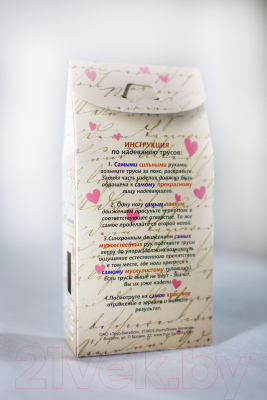 ИНСТРУКЦИЯ
по надеванию трусов:
1. Самыми сильными руками
возьмите трусы за пояс, расправьте.
Задняя часть изделия должна быть
обращена к самому прекрасному
лицу надевающего.
2. Одну ногу самым
движением просуньте в
соответствующее отверстие. То же
самое проделайте второй ногой.
3. Синхронным движением самых
мужественных рук подтяните трусы
вверх до упора
ощущение естественного препятствия
в том месте, где ноги крепятся к
самому мускулистому туловищу.
Если трусы выше не лезут - значит
Вы их уже надели.
4. Посмотрите на самое красивое
отражение в зеркале и
результат.
21vek.by